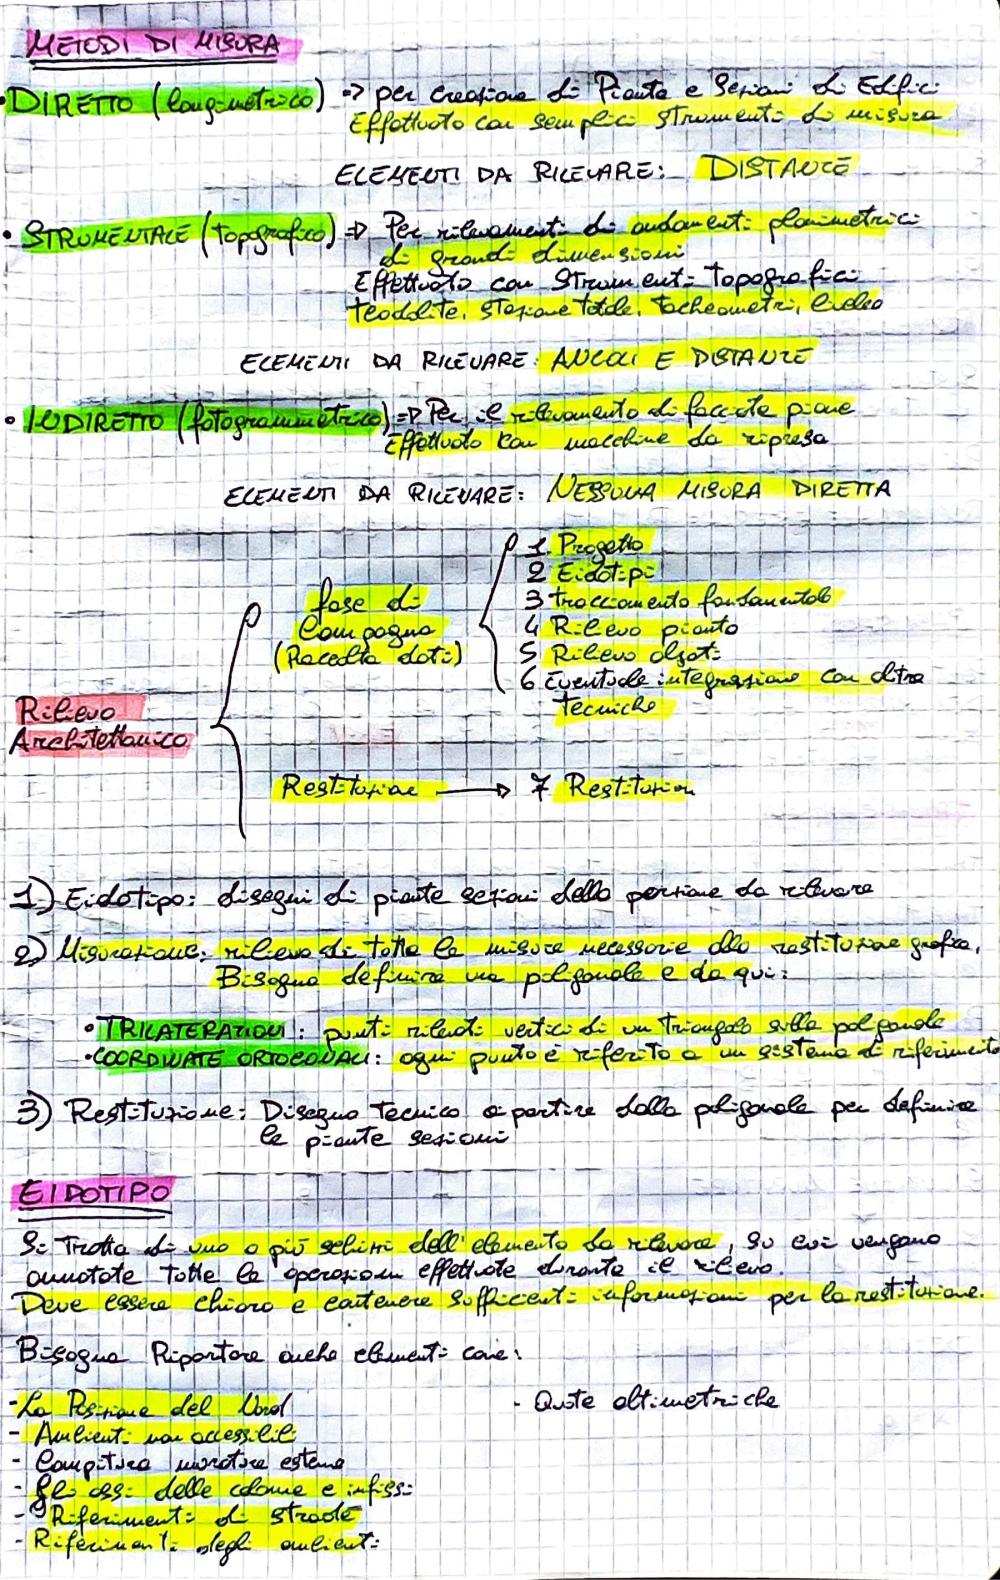 METODI DI MISURA
• DIRETTO (longimetrico) -> per creazione di Pianta e Sezioni di Edifici
Effettuato con semplici strumenti di misura
ELEMENTI DA RILEVARE: DISTANZE
• STRUMENTALE (topografico) => Per rilevamenti di andamenti planimetrici
di grandi dimensioni
Effettuato con Strumenti Topografici
teodolite, stazione totale, tacheometri,
ELEMENTI DA RILEVARE: ANGOLI E DISTANZE
• INDIRETTO (fotogrammetrico) => Per il rilevamento di facciate piane
Effettuato con macchine da ripresa
ELEMENTI DA RILEVARE: NESSUNA MISURA DIRETTA
Rilievo
Architettonico
fase di
Campagna
(Raccolta dati)
1. Progetto
2 Eidotipi
3 tracciamento fondamentale
4 Rilievo pianta
5 Rilievo alzati
6 Eventuale integrazione con altre
tecniche
Restituzione → 7 Restituzion
1) Eidotipo: disegni di piante sezioni della porzione da rilevare
2) Misurazione: rilievo di tutte le misure necessarie alla restituzione grafica.
Bisogna definire una poligonale e da qui:
• TRILATERAZIONI: punti rilevati vertici di un triangolo sulla poligonale
• COORDINATE ORTOGONALI: ogni punto è riferito a un sistema di riferimento
3) Restituzione: Disegno tecnico a partire dalla poligonale per definire
le piante sezioni
EIDOTIPO
Si Tratta di uno o più schizzi dell'elemento da rilevare, su cui vengano
annotate tutte le operazioni effettuate durante il rilievo.
Deve essere chiaro e contenere sufficienti informazioni per la restituzione.
Bisogna Riportare anche elementi come:
- La Posizione del Nord
- Ambienti non accessibili
- muratura esterna
- Gli assi delle colonne e infissi
- Riferimenti di strade
- Riferimenti degli ambienti
- Quote altimetriche